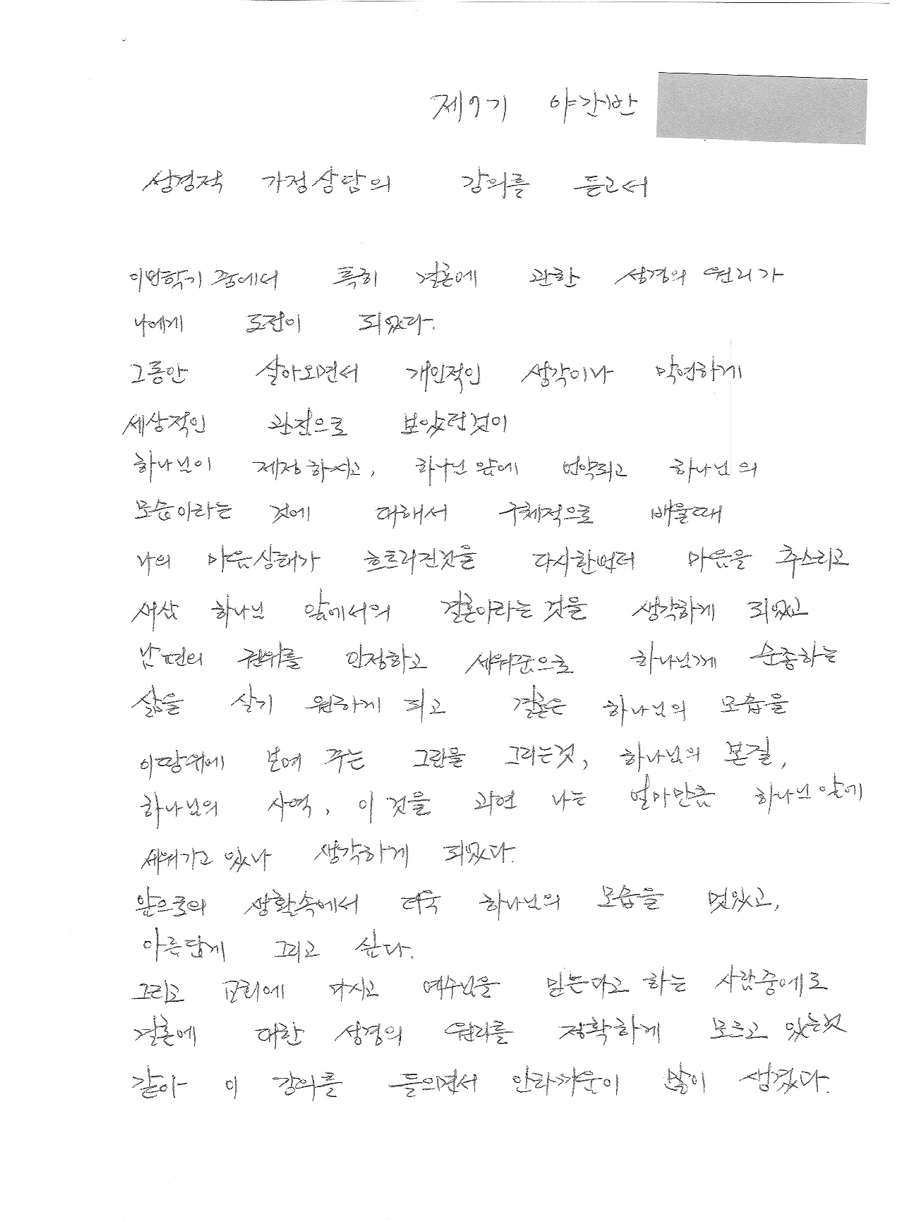 제9기 야간반
성경적 가정상담의 강의를 듣고서
이번학기 중에서 특히 결혼에 관한 성경의 원리가
나에게 도전이 되었다.
그동안 살아오면서 개인적인 생각이나 막연하게
세상적인 관점으로 보았던것이
하나님이 제정하시고, 하나님 앞에 언약되고 하나님의
모습이라는 것에 대해서 구체적으로 배울때
나의 마음상태가 흐트러진것을 다시한번더 마음을 추스리고
새삼 하나님 앞에서의 결혼이라는 것을 생각하게 되었고
남편의 권위를 인정하고 세워줌으로 하나님께 순종하는
삶을 살기 원하게 되고 결혼은 하나님의 모습을
이땅위에 보여 주는 그림을 그리는것, 하나님의 본질,
하나님의 사역, 이 것을 과연 나는 얼마만큼 하나님 앞에
세워가고 있나 생각하게 되었다.
앞으로의 생활속에서 더욱 하나님의 모습을 멋있고,
아름답게 그리고 싶다.
그리고 교회에 다시고 예수님을 믿는다고 하는 사람중에도
결혼에 대한 성경의 원리를 정확하게 모르고 있는것
같아 이 강의를 들으면서 안타까움이 많이 생겼다.